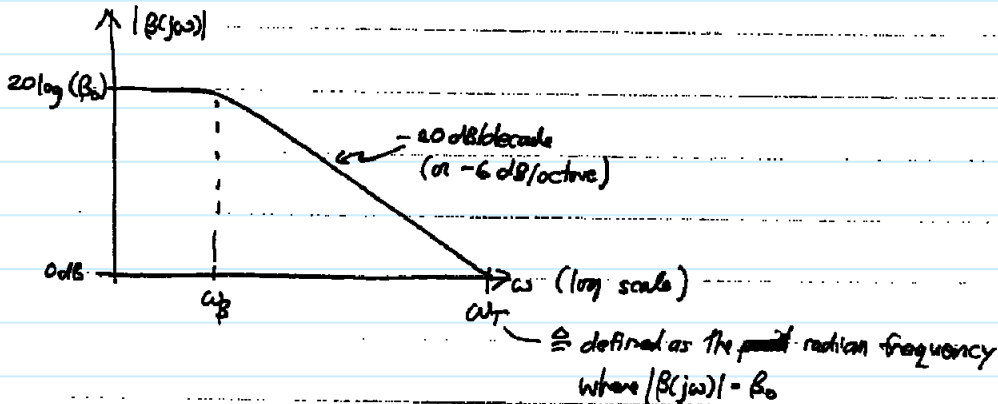 |β(jω)|
20log (β₀)
- 20 dB/decade
(or -6 dB/octave)
0dB
ω (log scale)
ω_β
ω_T
≜ defined as the radian frequency
where |β(jω)| = β₀